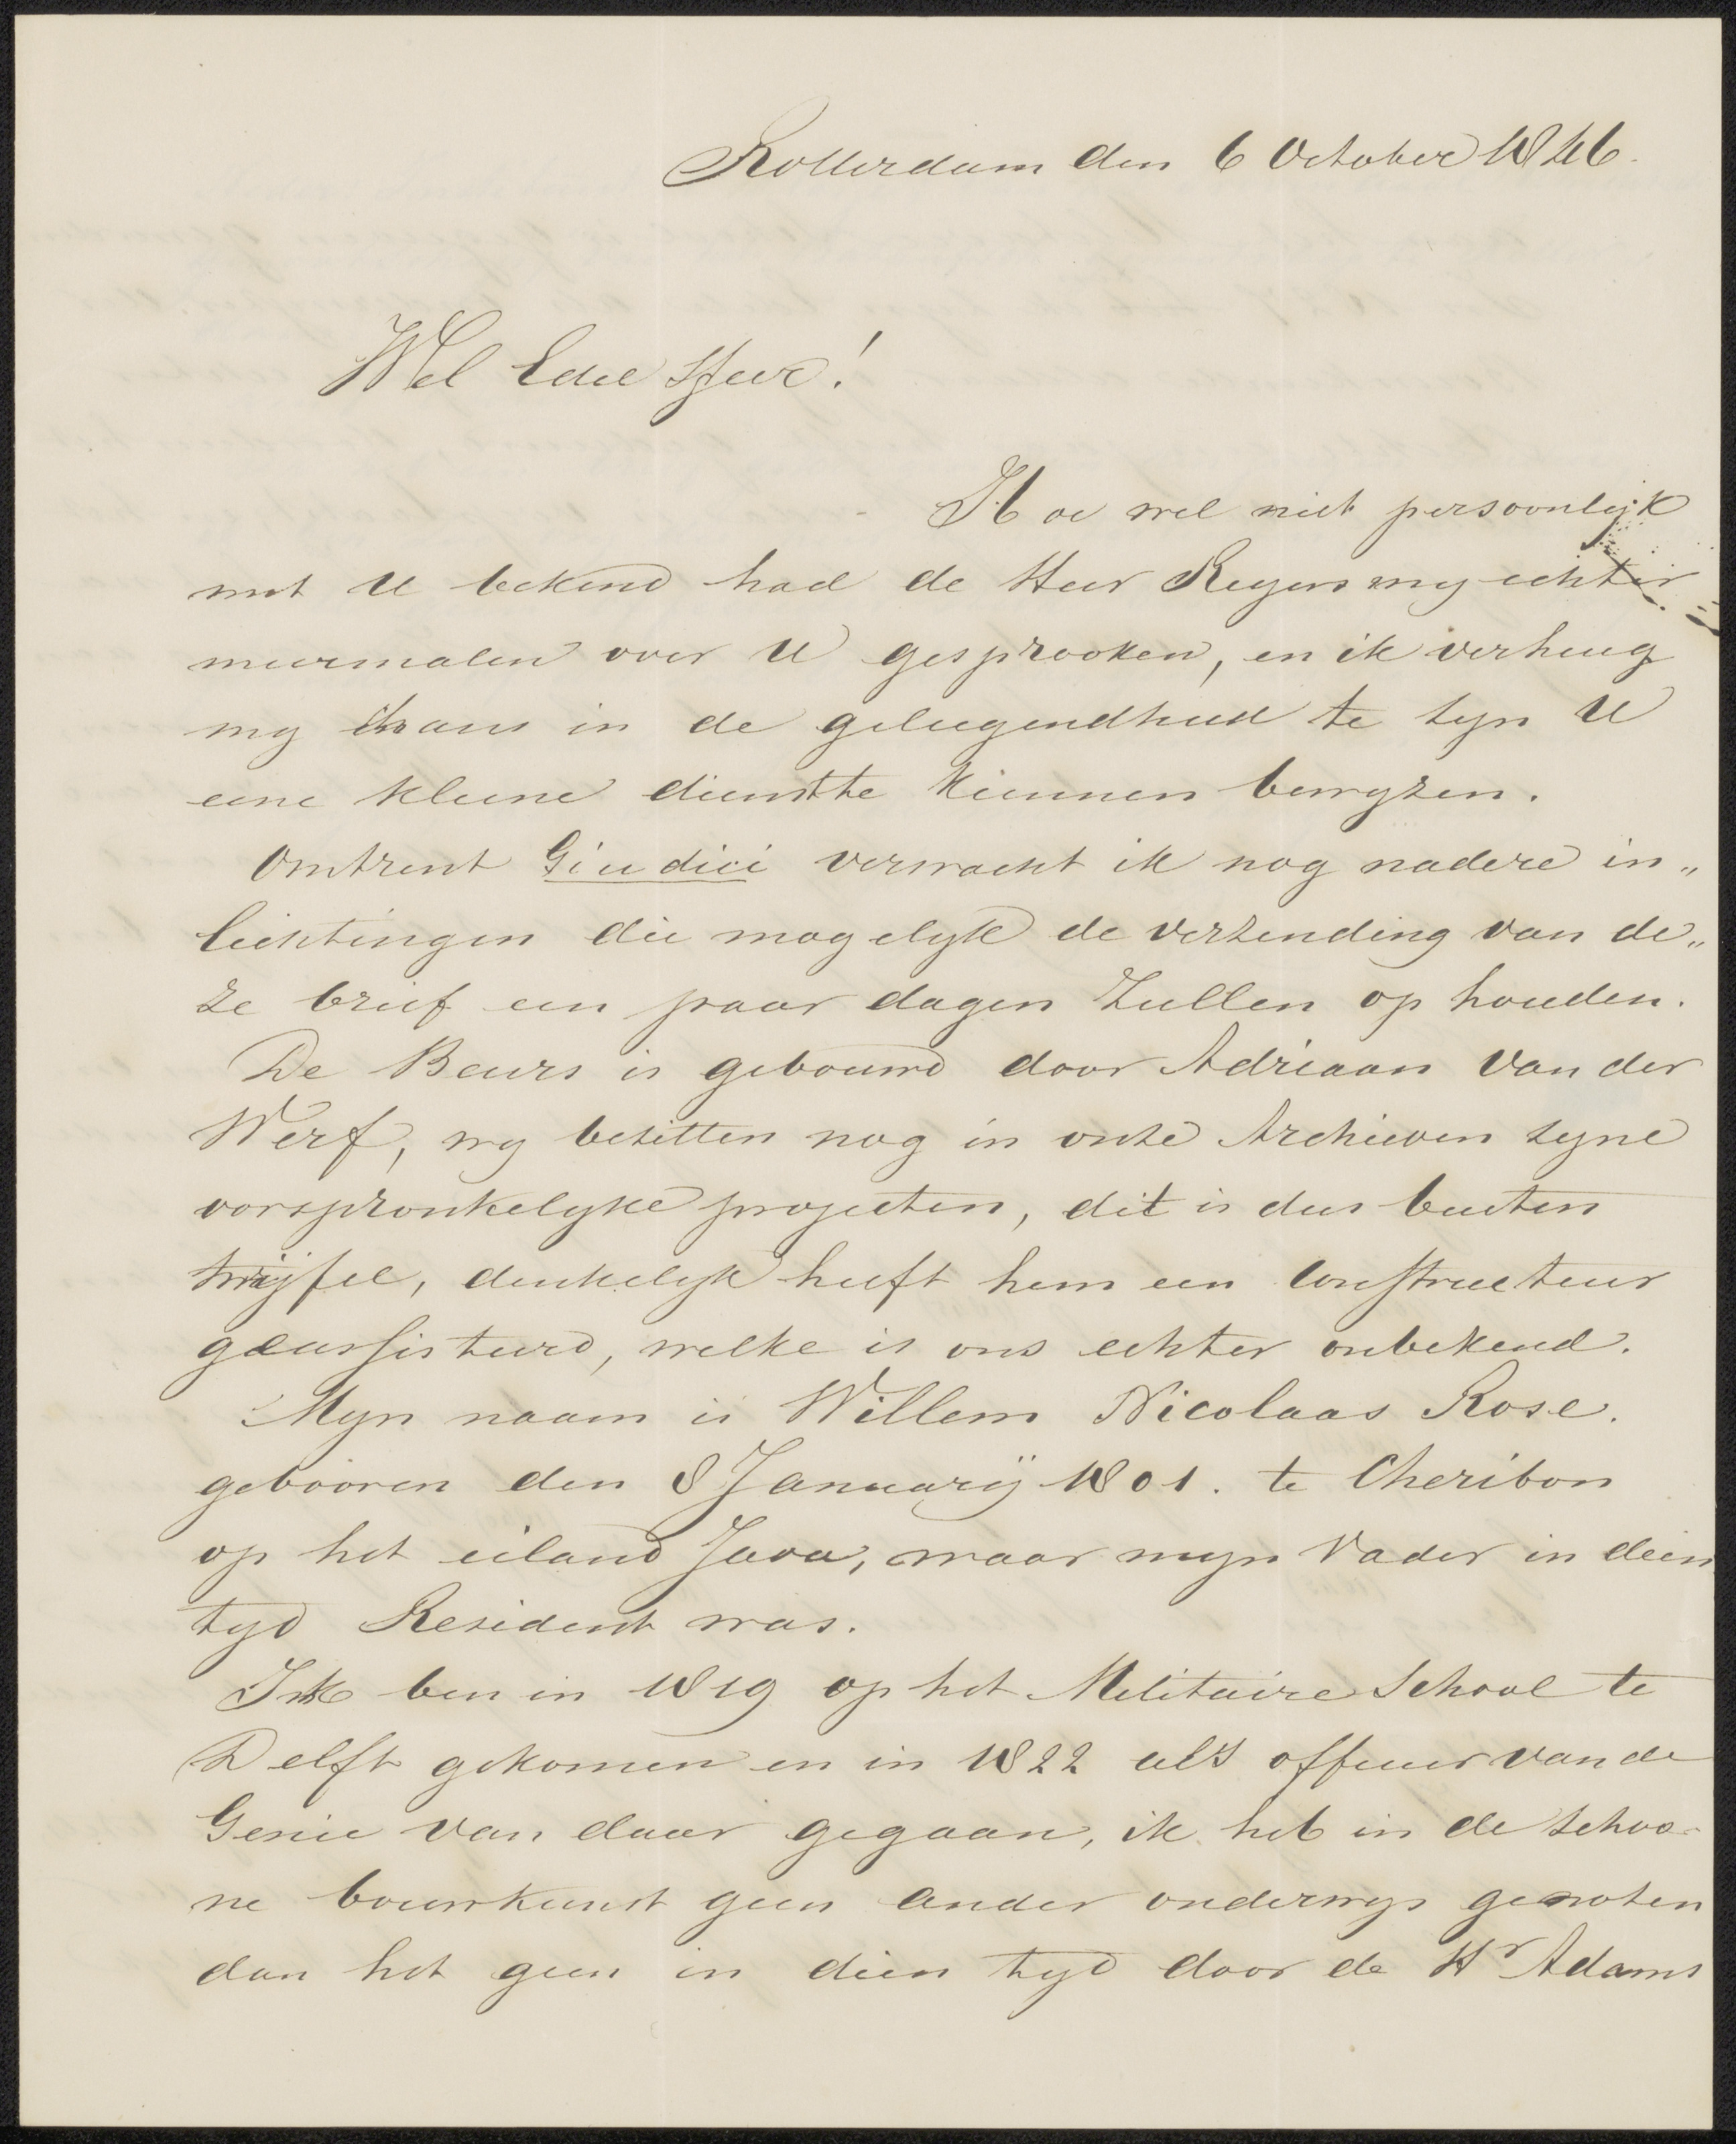 Rotterdam den 6 October 1846.
Wel Edele Heer!
Hoe wel niet persoonlijk
met U bekend had de Heer Reyers my echter
meermalen over U gesprooken, en ik verheug
my thans in de geleegendheid te zyn U
eene kleine dienst te kunnen bewyzen.
Omtrent Giudici verwacht ik nog nadere in„
lichtingen die mogelyk de verzending van de„
ze brief een paar dagen zullen op houden.
De Beurs is gebouwd door Adriaan van der
Werf, wy bezitten nog in onze Archieven zyne
oorspronkelyke projecten, dit is dus buiten
twijfel, denkelyk heeft hem een Constructeur
geassisteerd, welke is ons echter onbekend.
Myn naam is Willem Nicolaas Rose.
gebooren den 8 Januarij 1801. te Cheribon
op het eiland Java, waar myn Vader in dien
tyd Resident was.
Ik ben in 1819 op het Militaire School te
Delft gekomen en in 1822 als officier van de
Genie van daar gegaan, ik heb in de schoo-
ne bouwkunst geen ander onderwys genoten
dan het geen in dien tyd door de Hr Adams